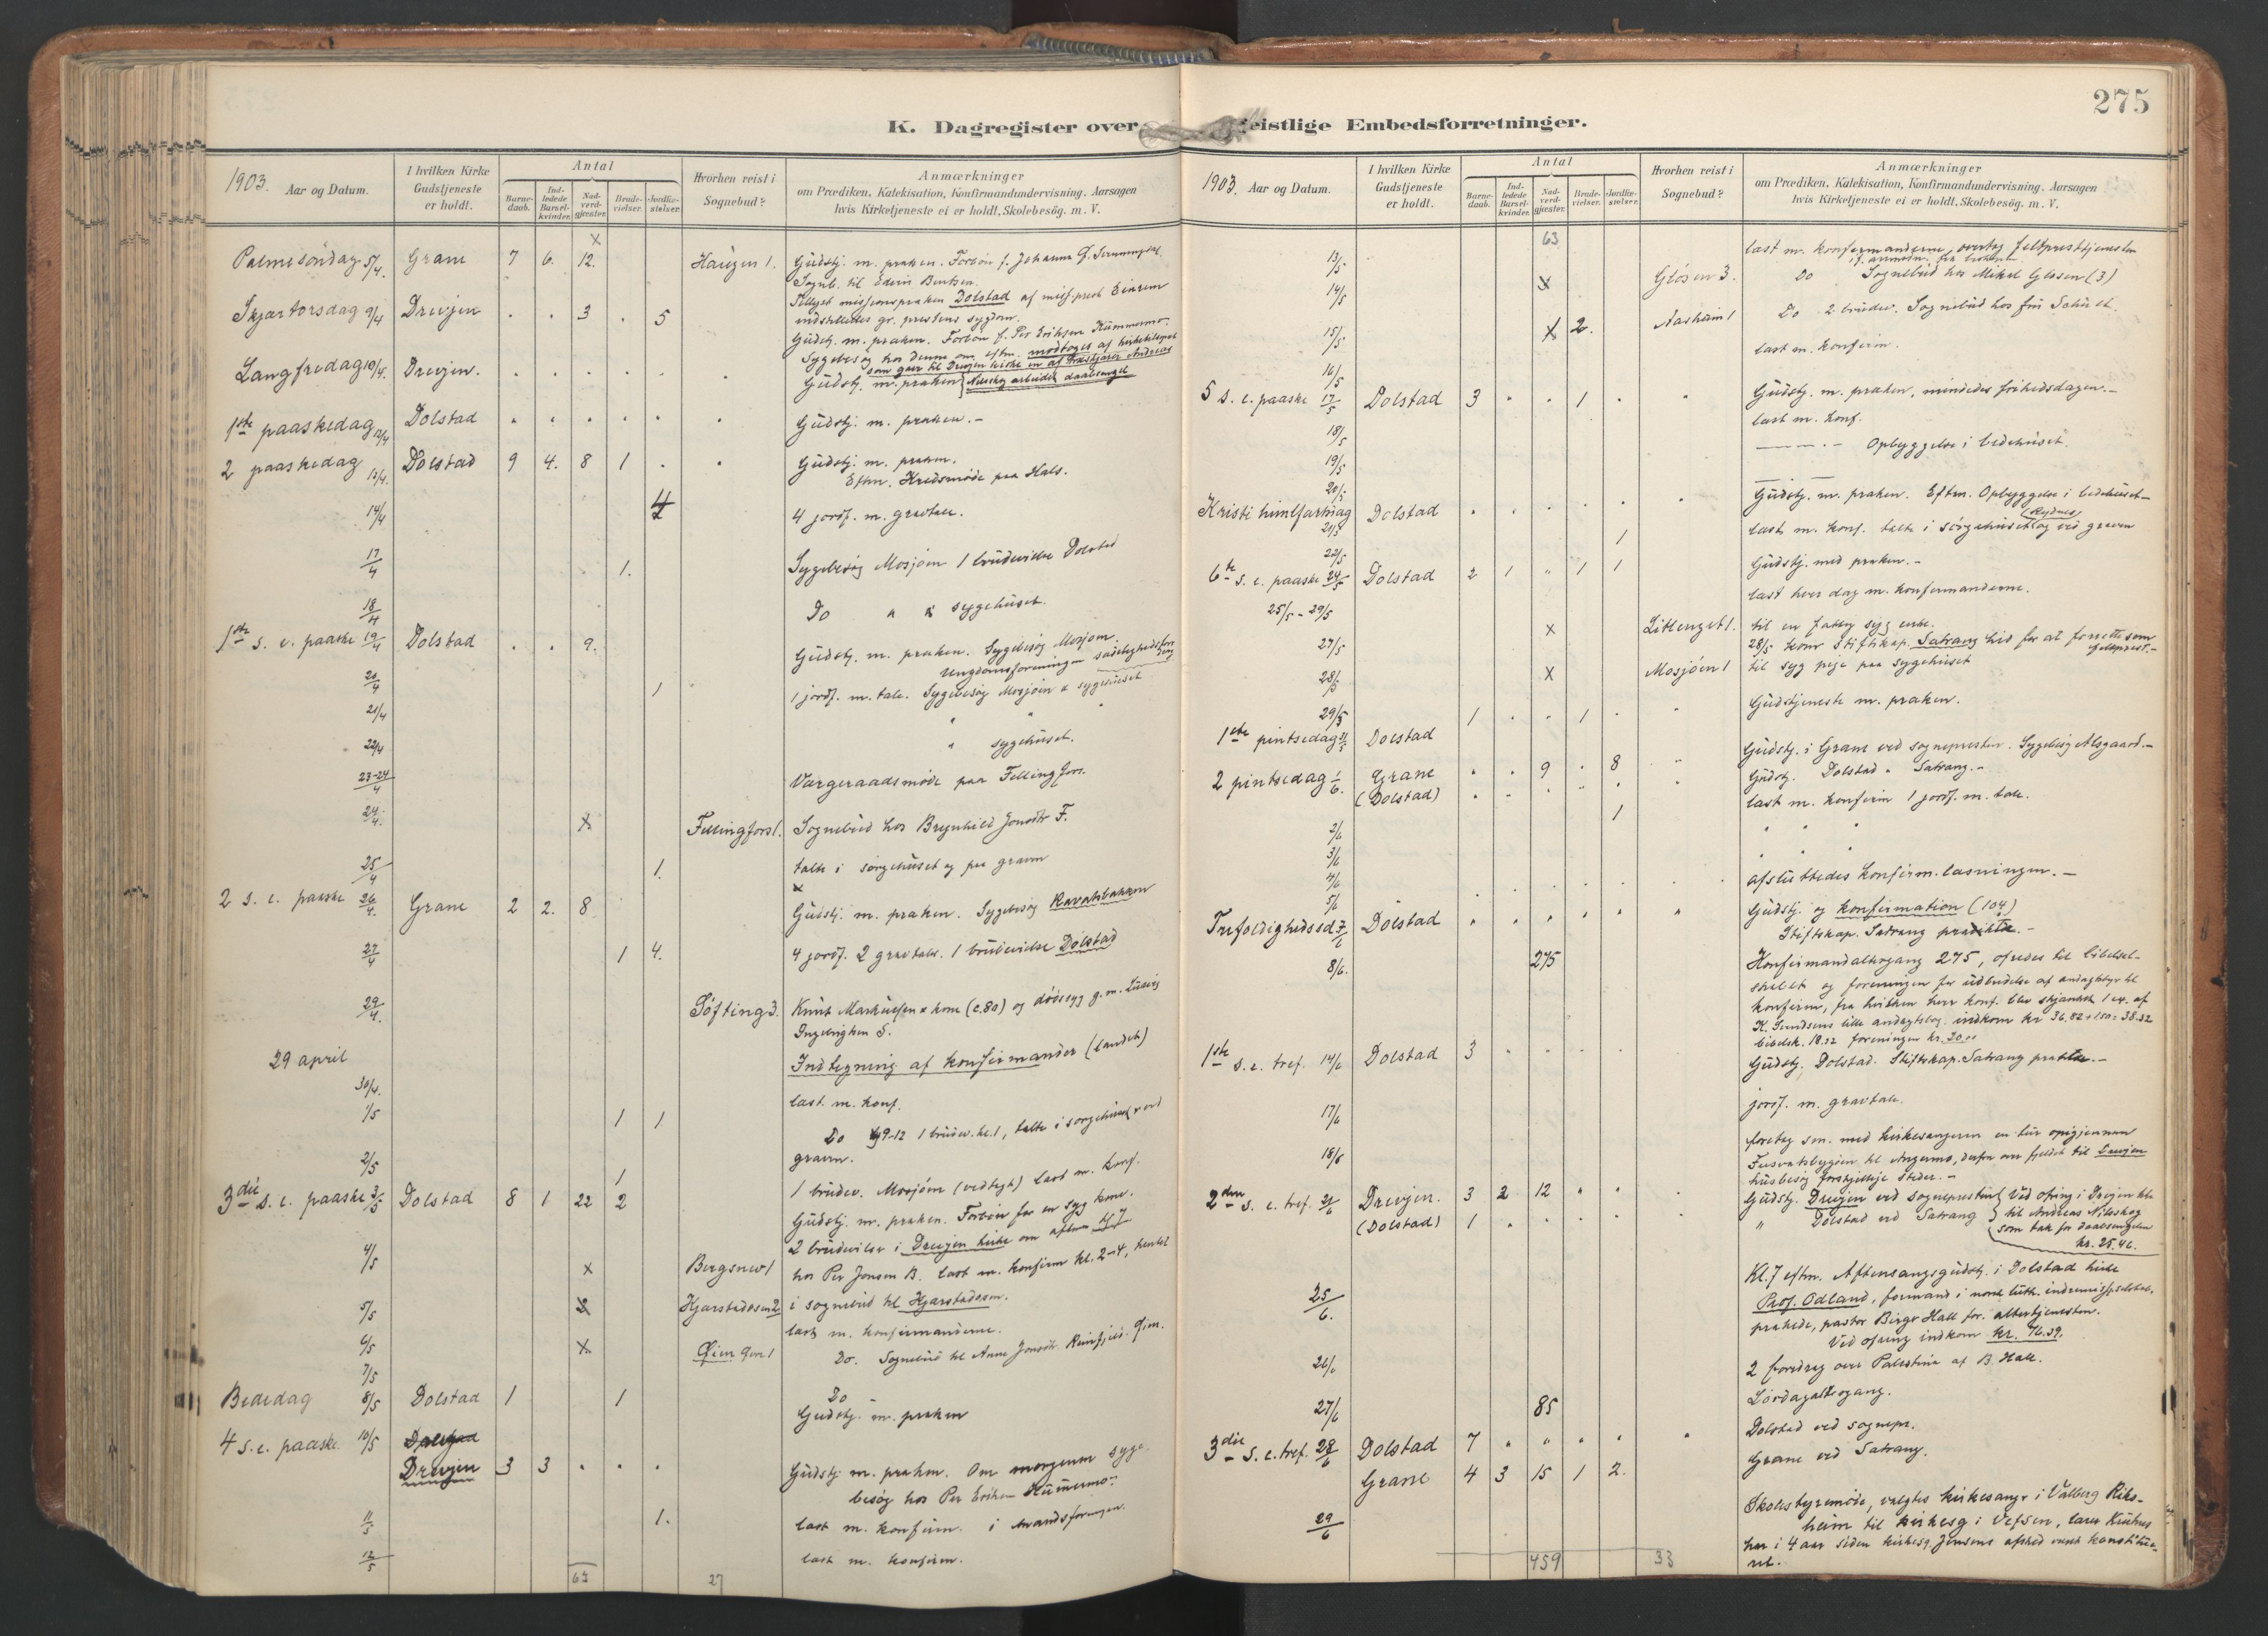 275
K. Dagregister over geistlige Embedsforretninger.
1903. Aar og Datum.
I hvilken Kirke Gudstjeneste er holdt.
Antal
Barnedaab.
Indledede Barselkvinder.
Nadverdgjester.
Brudevielser.
Jordfæstelser.
Hvorhen reist i Sognebud?
Anmærkninger
om Prædiken, Katekisation, Konfirmandundervisning. Aarsagen
hvis Kirketjeneste ei er holdt. Skolebesøg. m. V.
Palmesöndag 5/4. Grane 7 6. 12. Haugen 1. Gudstj. m. præken. Forbön f. Johanna
Sogneb. til Edvin Bentsen.
Skjærtorsdag 9/4 Drevjen . . 3 . 5 Dolstad
indstilledes gr. prestens sygdom.
Gudstj. m. præken. Forbön f. Per Eriksen Kummermo.
Langfredag 10/4. Drevjen. . . . . . Gudstj. m. præken
1ste paaskedag 12/4 Dolstad . . . . . Gudstj. m. præken. -
2 paaskedag 13/4. Dolstad 9 4. 8 1 . Gudstj. m. præken.
Eftm. Kredsmöde paa Hals.
14/4 4 4 jordf. m. gravtale.
17/4 1. Sygebesög Mosjöen 1 brudevielse Dolstad
18/4 Do " sygehuset.
1ste s. e. paaske 19/4 Dolstad . . 9. Gudstj. m. præken. Sygebesög Mosjöen.
20/4 1 1 jordf. m. tale. Sygebesög Mosjöen & sygehuset
21/4 " "
22/4 " sygehuset.
23-24/4 Værgeraadsmöde paa Fellingfors.
24/4. x Fellingfors 1. Sognebud hos Brynhild Jonsdtr F.
25/4 1. talte i sörgehuset og paa graven
2 s. e. paaske 26/4. Grane 2 2. 8 Gudstj. m. præken. Sygebesög
27/4 1 4. 4 jordf. 2 gravtaler. 1 brudevielse Dolstad
29/4. Söfting 3. Knut Markussen & kone (c.80) og dödssyg g. m. Ludvig
Ingebrigtsen S.
29 april Indtegning af konfirmander (landet)
30/4. læst. m. konf.
1/5 1 1 Do 9-12 1 brudev. kl. 1, talte i sorgehuset & ved
graven.
2/5 1 1 brudev. Mosjöen (vedtægt) læst m. konf.
3die s. e. paaske 3/5 Dolstad 8 1 22 2 Gudstj. m. præken. Forbön for en syg kone.
2 brudevielser i Drevjen kirke om aften kl 7
4/5 x Bergsnev 1 hos Per Jonsen B. læst m. konfirm kl. 2-4, hentet
5/5 x Hjartaasen 2 i sognebud til
læst m. konfirmanderne.
6/5 x Öien 1 Do. Sognebud til Anne Jonsdtr.
7/5 Do
Bededag 8/5 Dolstad 1 1 Gudstj. m. præken
4 s. e. paaske. 10/5 Drevjen 3 3 . . . Gudstj m. præken. Om morgenen syge-
besög hos Per Eriksen Kummermo.
11/5 1. læst m. konfirm.
12/5 læst m. konfirm.
63 27
1903. Aar og Datum.
I hvilken Kirke Gudstjeneste er holdt.
Antal
Barnedaab.
Indledede Barselkvinder.
Nadverdgjester.
Brudevielser.
Jordfæstelser.
Hvorhen reist i Sognebud?
Anmærkninger
om Prædiken, Katekisation, Konfirmandundervisning. Aarsagen
hvis Kirketjeneste ei er holdt. Skolebesøg. m. V.
63
13/5 læst m. konfirmanderne, overtog feltpresttjenesten
14/5 x Glösen 3. Do Sognebud hos Mikal Glösen (3)
15/5 x 2. Aasheim 1 Do 2 brudev. Sognebud hos
16/5 læst m. konfirm.
5 s. e. paaske 17/5 Dolstad 3 . . 1 . Gudstj. m. præken, mindedes frihedsdagen. -
18/5 læst m. konf.
19/5 Opbyggelse i bedehuset.
20/5
Kristi himlfartsdag 21/5 Dolstad . . . . . Gudstj. m. præken. Eftm. Opbyggelse i bedehuset -
22/5 1 læst m. konf. talte i sörgehuset og ved graven
6te s. e. paaske 24/5 Dolstad 2 1 " 1 1 Gudstj. med præken. -
25/5 - 29/5 læst hver dag m. konfirmanderne.
27/5 x 1. til en fattig syg enke.
28/5 kom Stiftskap. Satrang hid for at
28/5 x Mosjöen 1 til syg pige paa sygehuset
29/5
1ste pintsedag 31/5 Dolstad 1 . . 1 . Gudstjeneste m. præken.
2 pintsedag 1/6. Grane . . 9 . 8 Gudstj. i Grane ved sognepresten. Sygebesög Alsgaard. -
(Dolstad) Gudstj. Dolstad " Satrang. -
2/6 1 læst m. konfirm 1 jordf. m. tale.
3/6 " "
4/6 " "
5/6 afsluttedes konfirm. læsningen. -
Trefoldighedssd 7/6 Dolstad " " " " " Gudstj. og konfirmation (104)
Stiftskap. Satrang prædikte. -
8/6. 275 Konfirmandaltergang 275, ofredes til bibelsel-
skabet og foreningen for udbredelse af andagtsbög til
konfirm, fra hvilken hver konf. blev skjænket 1 ex. af
lille andagtsbog. indkom kr 36.82 + 1.50 = 38.32
bibelsk. 18.32 foreningen kr. 20.00
1ste s. e. tref. 14/6 Dolstad 3 . . . . Gudstj. Dolstad. Stiftskap. Satrang prækte. -
17/6 jordf. m. gravtale.
18/6 foretog sm. med kirkesangeren en tur opigjennem
Fusvatsbygden til Angermo, derfra over fjeldet til Drevjen
husbesög forskjellige steder. -
2den s. e. tref. 21/6 Drevjen. 3 2 12 " . Gudstj. Drevjen ved sognepresten Ved ofring i Drevjen
(Dolstad) 1 . . . . " Dolstad ved Satrang til Andreas Nilsskog
som tak for daabsengelen
kr. 25.46.
25/6. Kl. 7 eftm. Aftensangsgudstj. i Dolstad kirke
Prof. Odland, formand i norsk luth. indremissionsselskab,
prækede, pastor Birger Hall for. altertjenesten.
Ved ofring indkom kr. 76.39.
26/6 2 foredrag over Palestina af B. Hall.
27/6 85 Lördagsaltergang.
3die s. e. tref. 28/6 Dolstad 7 " " " " " Dolstad ved sognepr.
Grane 4 3 15 1 2. Grane ved Satrang.
29/6 Skolestyremöde, valgtes kirkesanger i Valberg Riks-
heim til kirkesg i Vefsen,
har i 4 aar siden kirkesg. Jensens afsked været konstitue-
ret.
459 33